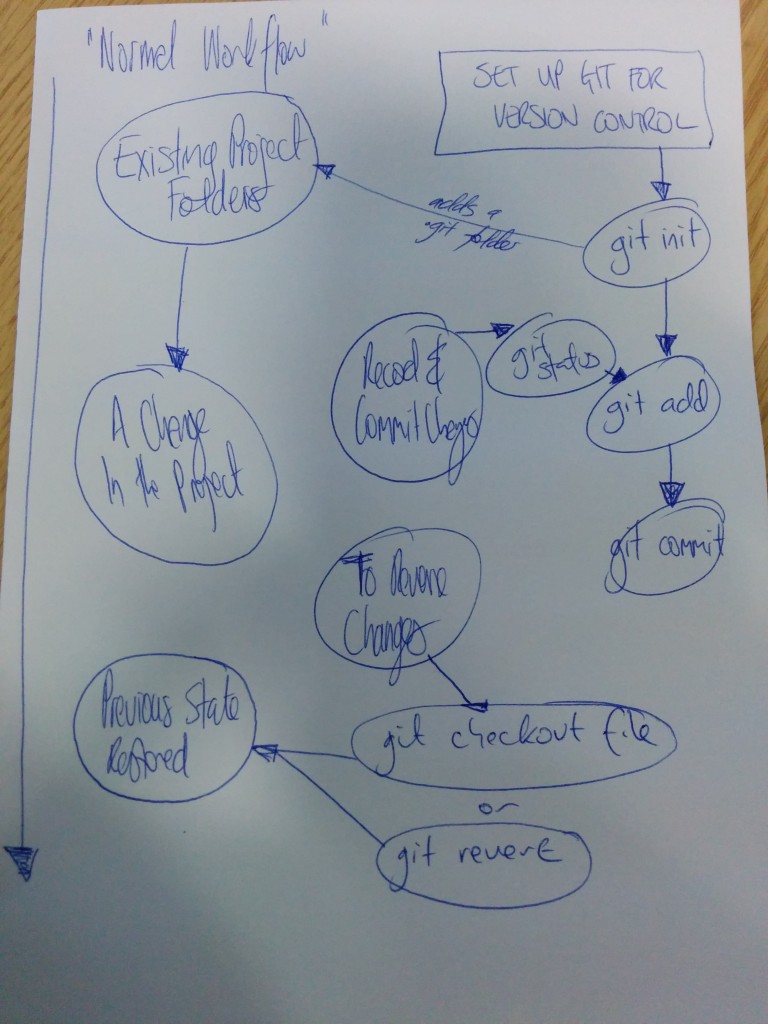 "Normal Workflow"
SET UP GIT FOR
VERSION CONTROL
Existing Project
Folders
adds a
.git folder
git init
Record &
Commit Changes
git
status
git add
A Change
In the Project
git commit
To Reverse
Changes
Previous State
Restored
git checkout file
or
git revert